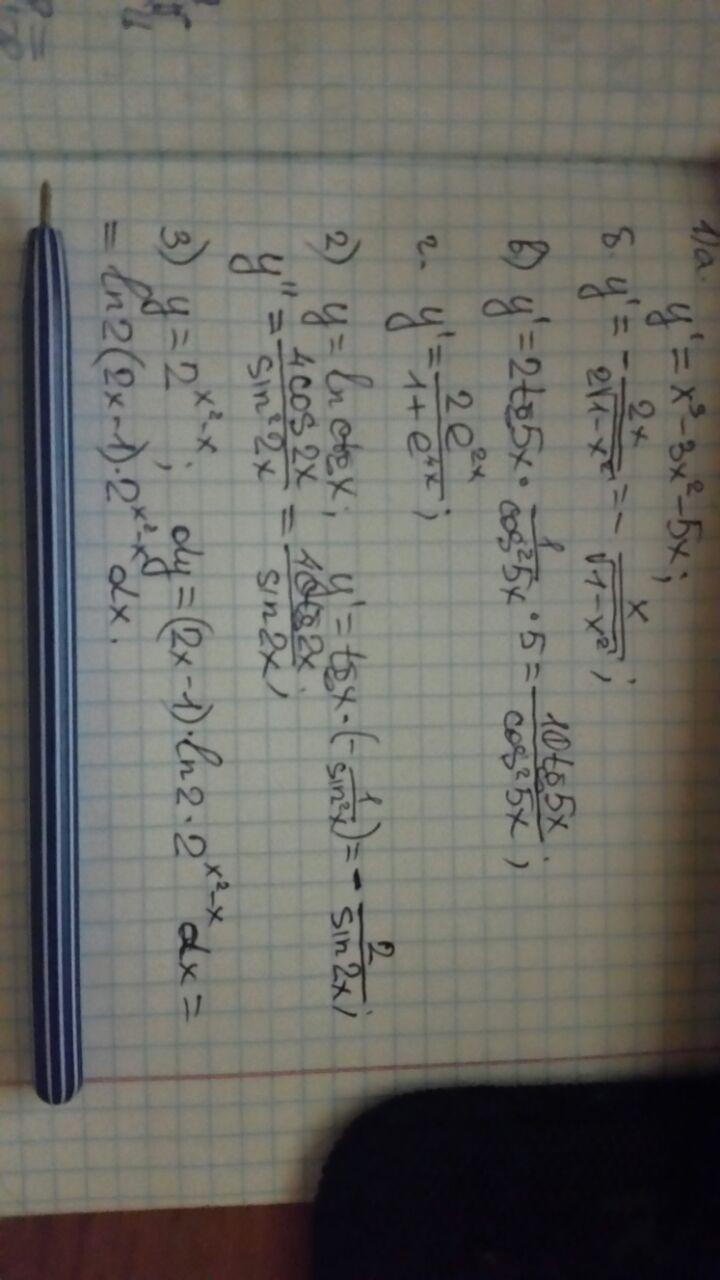 1) а. y' = x³ - 3x² - 5x;
б. y' = - 2x/(2√(1-x²)) = - x/√(1-x²);
в) y' = 2tg5x · 1/cos²5x · 5 = 10tg5x/cos²5x;
г. y' = 2e^(2x)/(1+e^(4x));
2) y = ln ctg x; y' = tgx · (- 1/sin²x) = - 2/sin2x;
y'' = 4cos2x/sin²2x = 4ctg2x/sin2x;
3) y = 2^(x²-x); dy = (2x-1)·ln2·2^(x²-x) dx =
= ln2(2x-1)·2^(x²-x) dx.